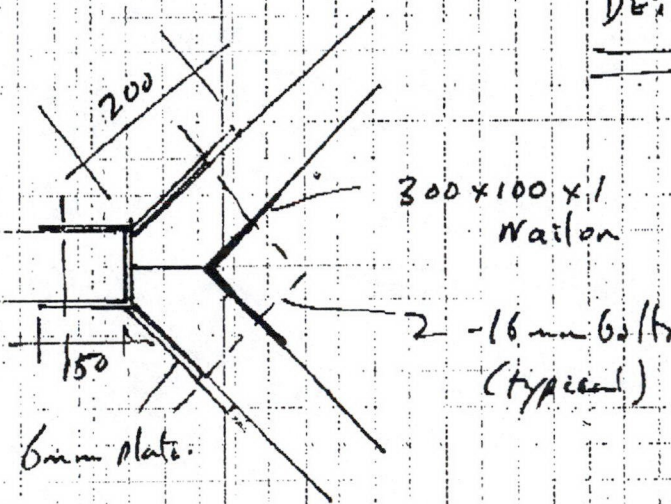 DE
200
300 x 100 x 1
Nailon
2 - 16 mm bolts
(typical)
150
6mm plate.